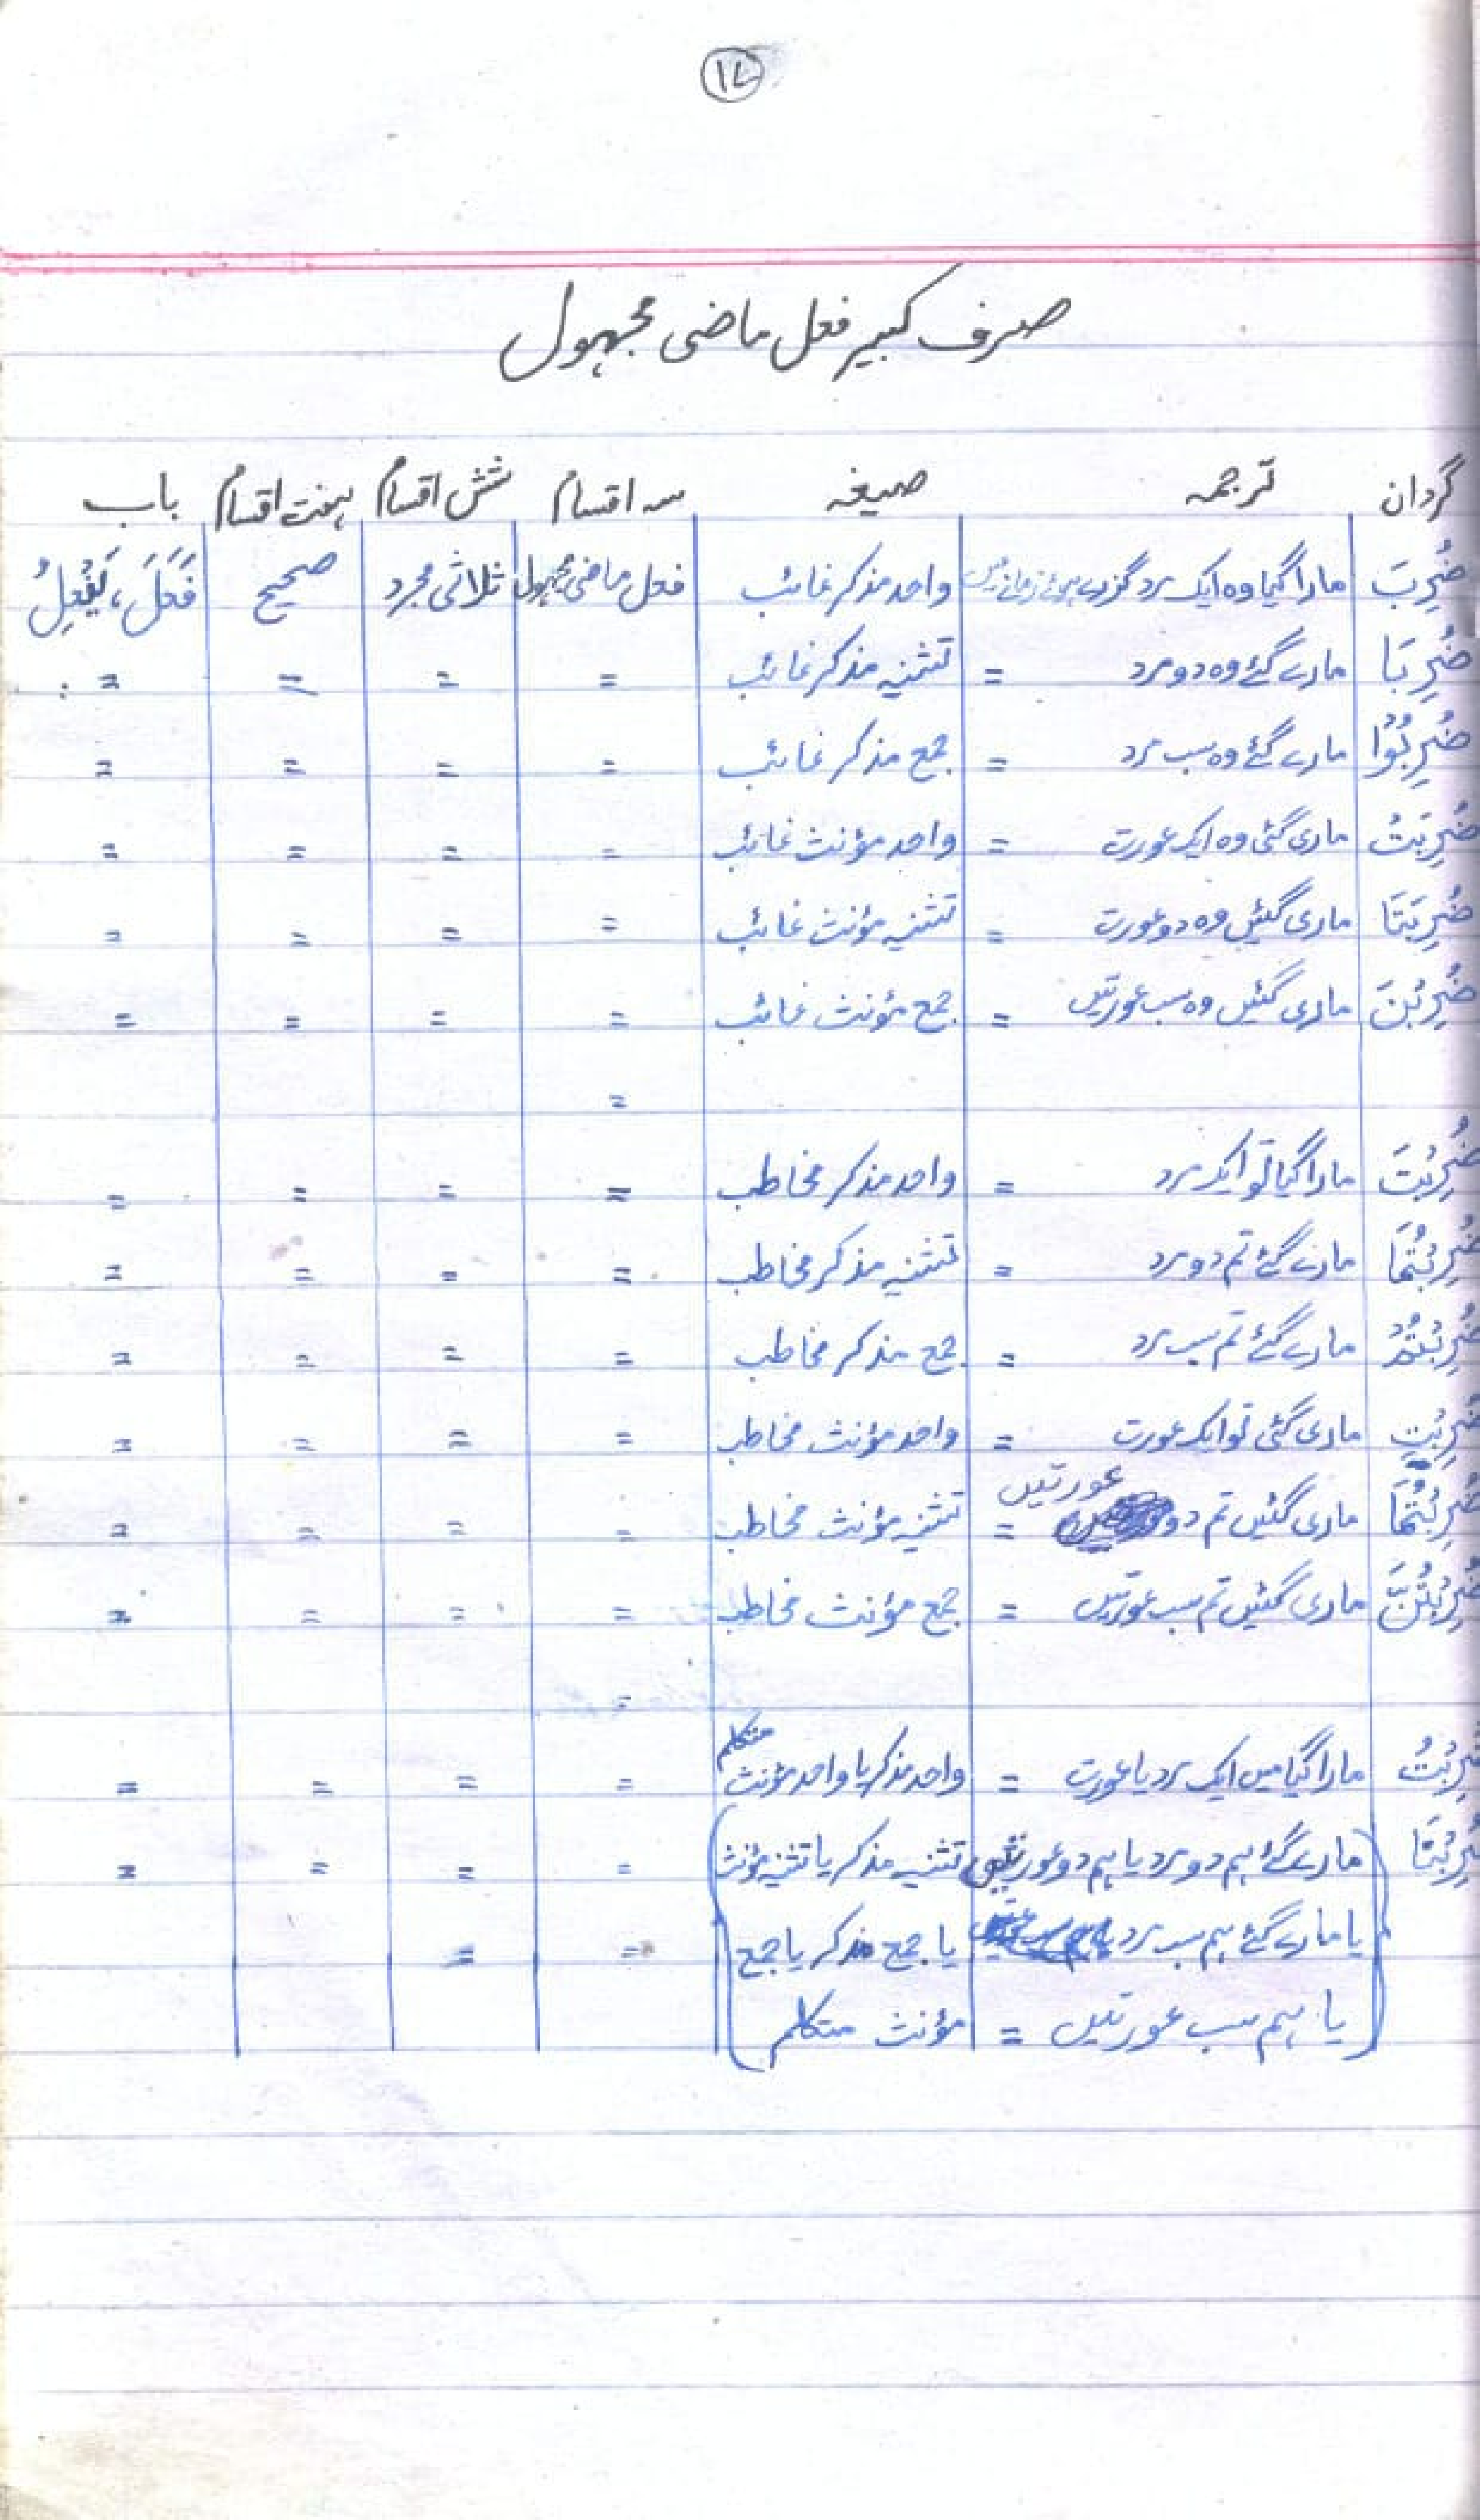 ۱۷
صرف کبیر فعل ماضی مجہول
گردان ترجمہ صیغہ سہ اقسام شش اقسام ہفت اقسام باب
ضُرِبَ مارا گیا وہ ایک مرد گزرے ہوئے زمانے میں واحد مذکر غائب فعل ماضی مجہول ثلاثی مجرد صحیح فَعَلَ، یَفْعِلُ
ضُرِبَا مارے گئے وہ دو مرد = تثنیہ مذکر غائب = = = =
ضُرِبُوْا مارے گئے وہ سب مرد = جمع مذکر غائب = = = =
ضُرِبَتْ ماری گئی وہ ایک عورت = واحد مؤنث غائب = = = =
ضُرِبَتَا ماری گئیں وہ دو عورت = تثنیہ مؤنث غائب = = = =
ضُرِبْنَ ماری گئیں وہ سب عورتیں = جمع مؤنث غائب = = = =
=
ضُرِبْتَ مارا گیا تو ایک مرد = واحد مذکر مخاطب = = = =
ضُرِبْتُمَا مارے گئے تم دو مرد = تثنیہ مذکر مخاطب = = = =
ضُرِبْتُمْ مارے گئے تم سب مرد = جمع مذکر مخاطب = = = =
ضُرِبْتِ ماری گئی تو ایک عورت = واحد مؤنث مخاطب = = = =
ضُرِبْتُمَا ماری گئیں تم دو عورتیں = تثنیہ مؤنث مخاطب = = = =
ضُرِبْتُنَّ ماری گئیں تم سب عورتیں = جمع مؤنث مخاطب = = = =
=
ضُرِبْتُ مارا گیا میں ایک مرد یا عورت = واحد مذکر یا واحد مؤنث متکلم = = = =
ضُرِبْنَا مارے گئے ہم دو مرد یا ہم دو عورتیں تثنیہ مذکر یا تثنیہ مؤنث = = = =
یا مارے گئے ہم سب مرد یا جمع مذکر یا جمع = =
یا ہم سب عورتیں = مؤنث متکلم